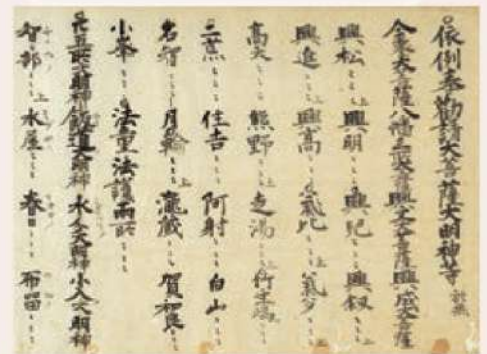 依例奉勸請大菩薩大明神等
金峯大菩薩八幡三所大菩薩興文大菩薩興成大菩薩
興松 興明 興児
興進 興高 氣比 氣多
高天 熊野 走湯 竹生嶋
二荒 住吉 阿射 白山
名智 月輪 瀧蔵 賀
小峯 法童 法護両所
大明神 飯道大明神 水分大明神 小入大明神
智郡 水屋 春日 布留